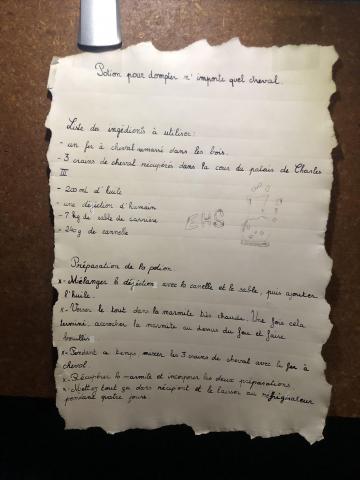 Potion pour dompter n'importe quel cheval.
Liste des ingédients à utiliser:
- un fer à cheval ramassé dans les bois.
- 3 crains de cheval récupérés dans la cour du palais de Charles
III
- 200 ml d'huile
- une déjection d'humain
- 7 kg de sable de carrière
- 240 g de cannelle
EHS
Préparation de la potion
x- Mélanger la déjection avec la canelle et le sable, puis ajouter
l'huile.
x- Verser le tout dans la marmite très chaude. Une fois cela
terminé, accrocher la marmite au dessus du feu et faire
bouillir.
x- Pendant ce temps, mixer les 3 crains de cheval avec le fer à
cheval.
x- Récupérer la marmite et incorporer les deux préparations
x- Mettez tout ça dans récipient et le laisser au réfrigérateur
pendant quatre jours.